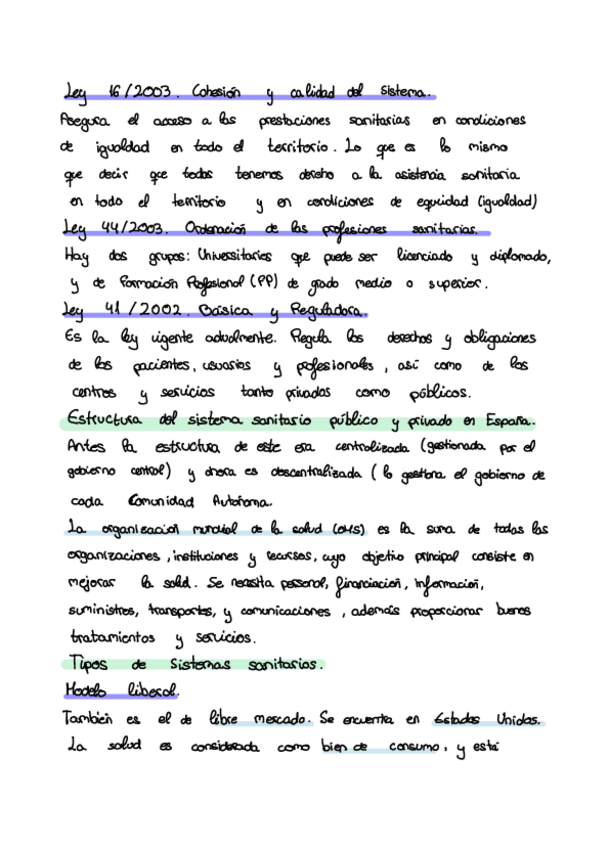 Ley 16/2003. Cohesión y calidad del Sistema.
Asegura el acceso a las prestaciones sanitarias en condiciones
de igualdad en todo el territorio. Lo que es lo mismo
que decir que todos tenemos derecho a la asistencia sanitaria
en todo el territorio y en condiciones de equidad (igualdad)
Ley 44/2003. Ordenación de las profesiones sanitarias.
Hay dos grupos: Universitarios que puede ser licenciado y diplomado,
y de Formación Profesional (PP) de grado medio o superior.
Ley 41/2002. Básica y Reguladora.
Es la ley vigente actualmente. Regula los derechos y obligaciones
de los pacientes, usuarios y profesionales, así como de los
centros y servicios tanto privados como públicos.
Estructura del sistema sanitario público y privado en España.
Antes la estructura de este era centralizada (gestionada por el
gobierno central) y ahora es descentralizada (lo gestiona el gobierno de
cada Comunidad Autónoma.
La organización mundial de la salud (OMS) es la suma de todas las
organizaciones, instituciones y recursos, cuyo objetivo principal consiste en
mejorar la salud. Se necesita personal, financiación, información,
suministros, transportes, y comunicaciones, además proporcionar buenos
tratamientos y servicios.
Tipos de Sistemas sanitarios.
Modelo liberal.
También es el de libre mercado. Se encuentra en Estados Unidos.
La salud es considerada como bien de consumo, y está